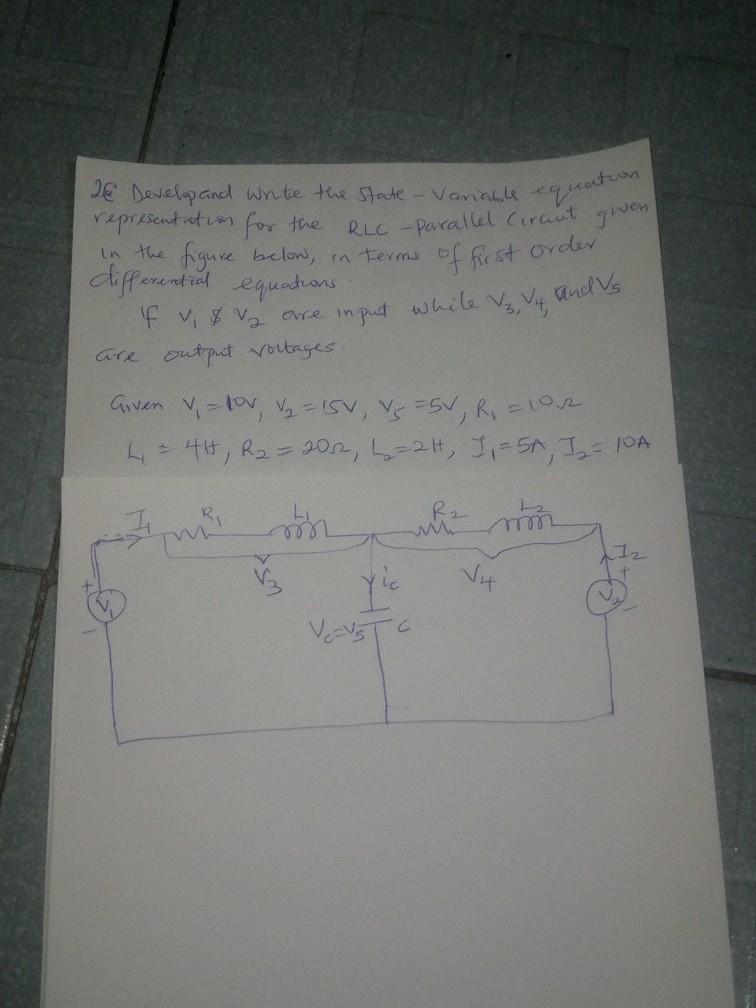 2C Develop and Write the State - Variable equation
representation for the RLC - parallel Circuit given
in the figure below, in terms of first order
differential equations.
If V1 & V2 are input while V3, V4, and V5
are output voltages.
Given V1 = 10V, V2 = 15V, V5 = 5V, R1 = 10Ω
L1 = 4H, R2 = 20Ω, L2 = 2H, I1 = 5A, I2 = 10A
I1 R1 L1 R2 L2
I2
V3 ic V4
+ V1 -
+ V2 -
Vc=V5 C